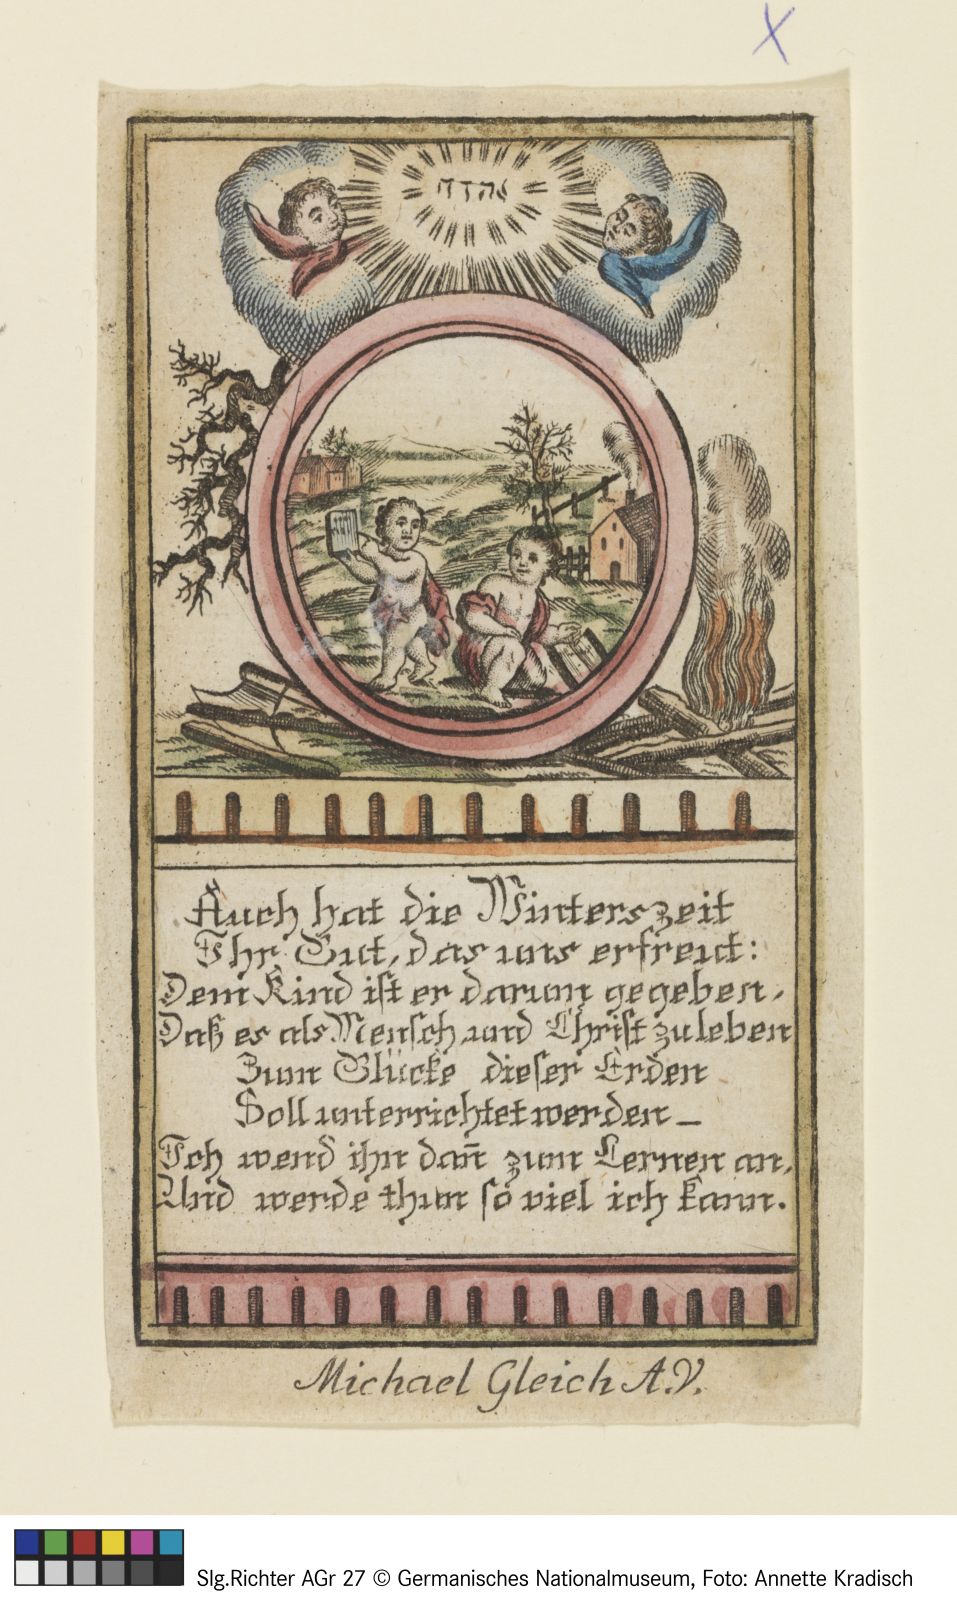 יהוה
Auch hat die Winterszeit
Ihr Gut, das uns erfreut:
Dem Kind ist er darum gegeben,
Daß es als Mensch und Christ zu leben
Zum Glücke dieser Erden
Soll unterrichtet werden_
Ich wend ihn dan̄ zum Lernen an,
Und werde thun so viel ich kann.
Michael Gleich A.V.
Slg.Richter AGr 27 © Germanisches Nationalmuseum, Foto: Annette Kradisch